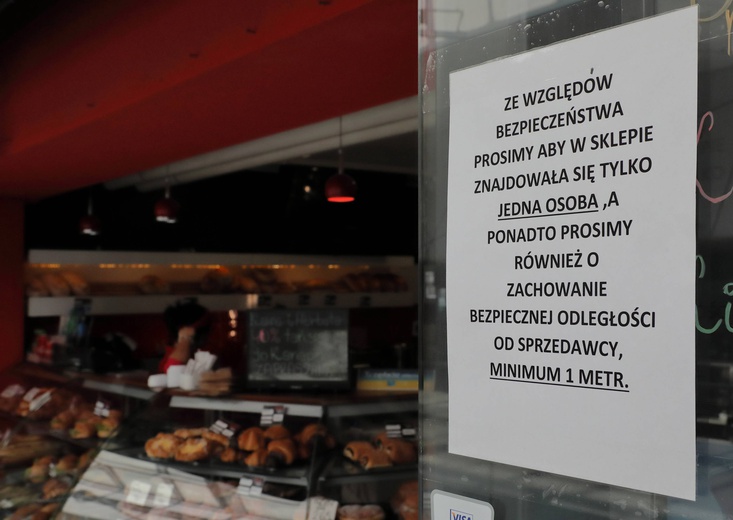 ZE WZGLĘDÓW
BEZPIECZEŃSTWA
PROSIMY ABY W SKLEPIE
ZNAJDOWAŁA SIĘ TYLKO
JEDNA OSOBA ,A
PONADTO PROSIMY
RÓWNIEŻ O
ZACHOWANIE
BEZPIECZNEJ ODLEGŁOŚCI
OD SPRZEDAWCY,
MINIMUM 1 METR.
VISA